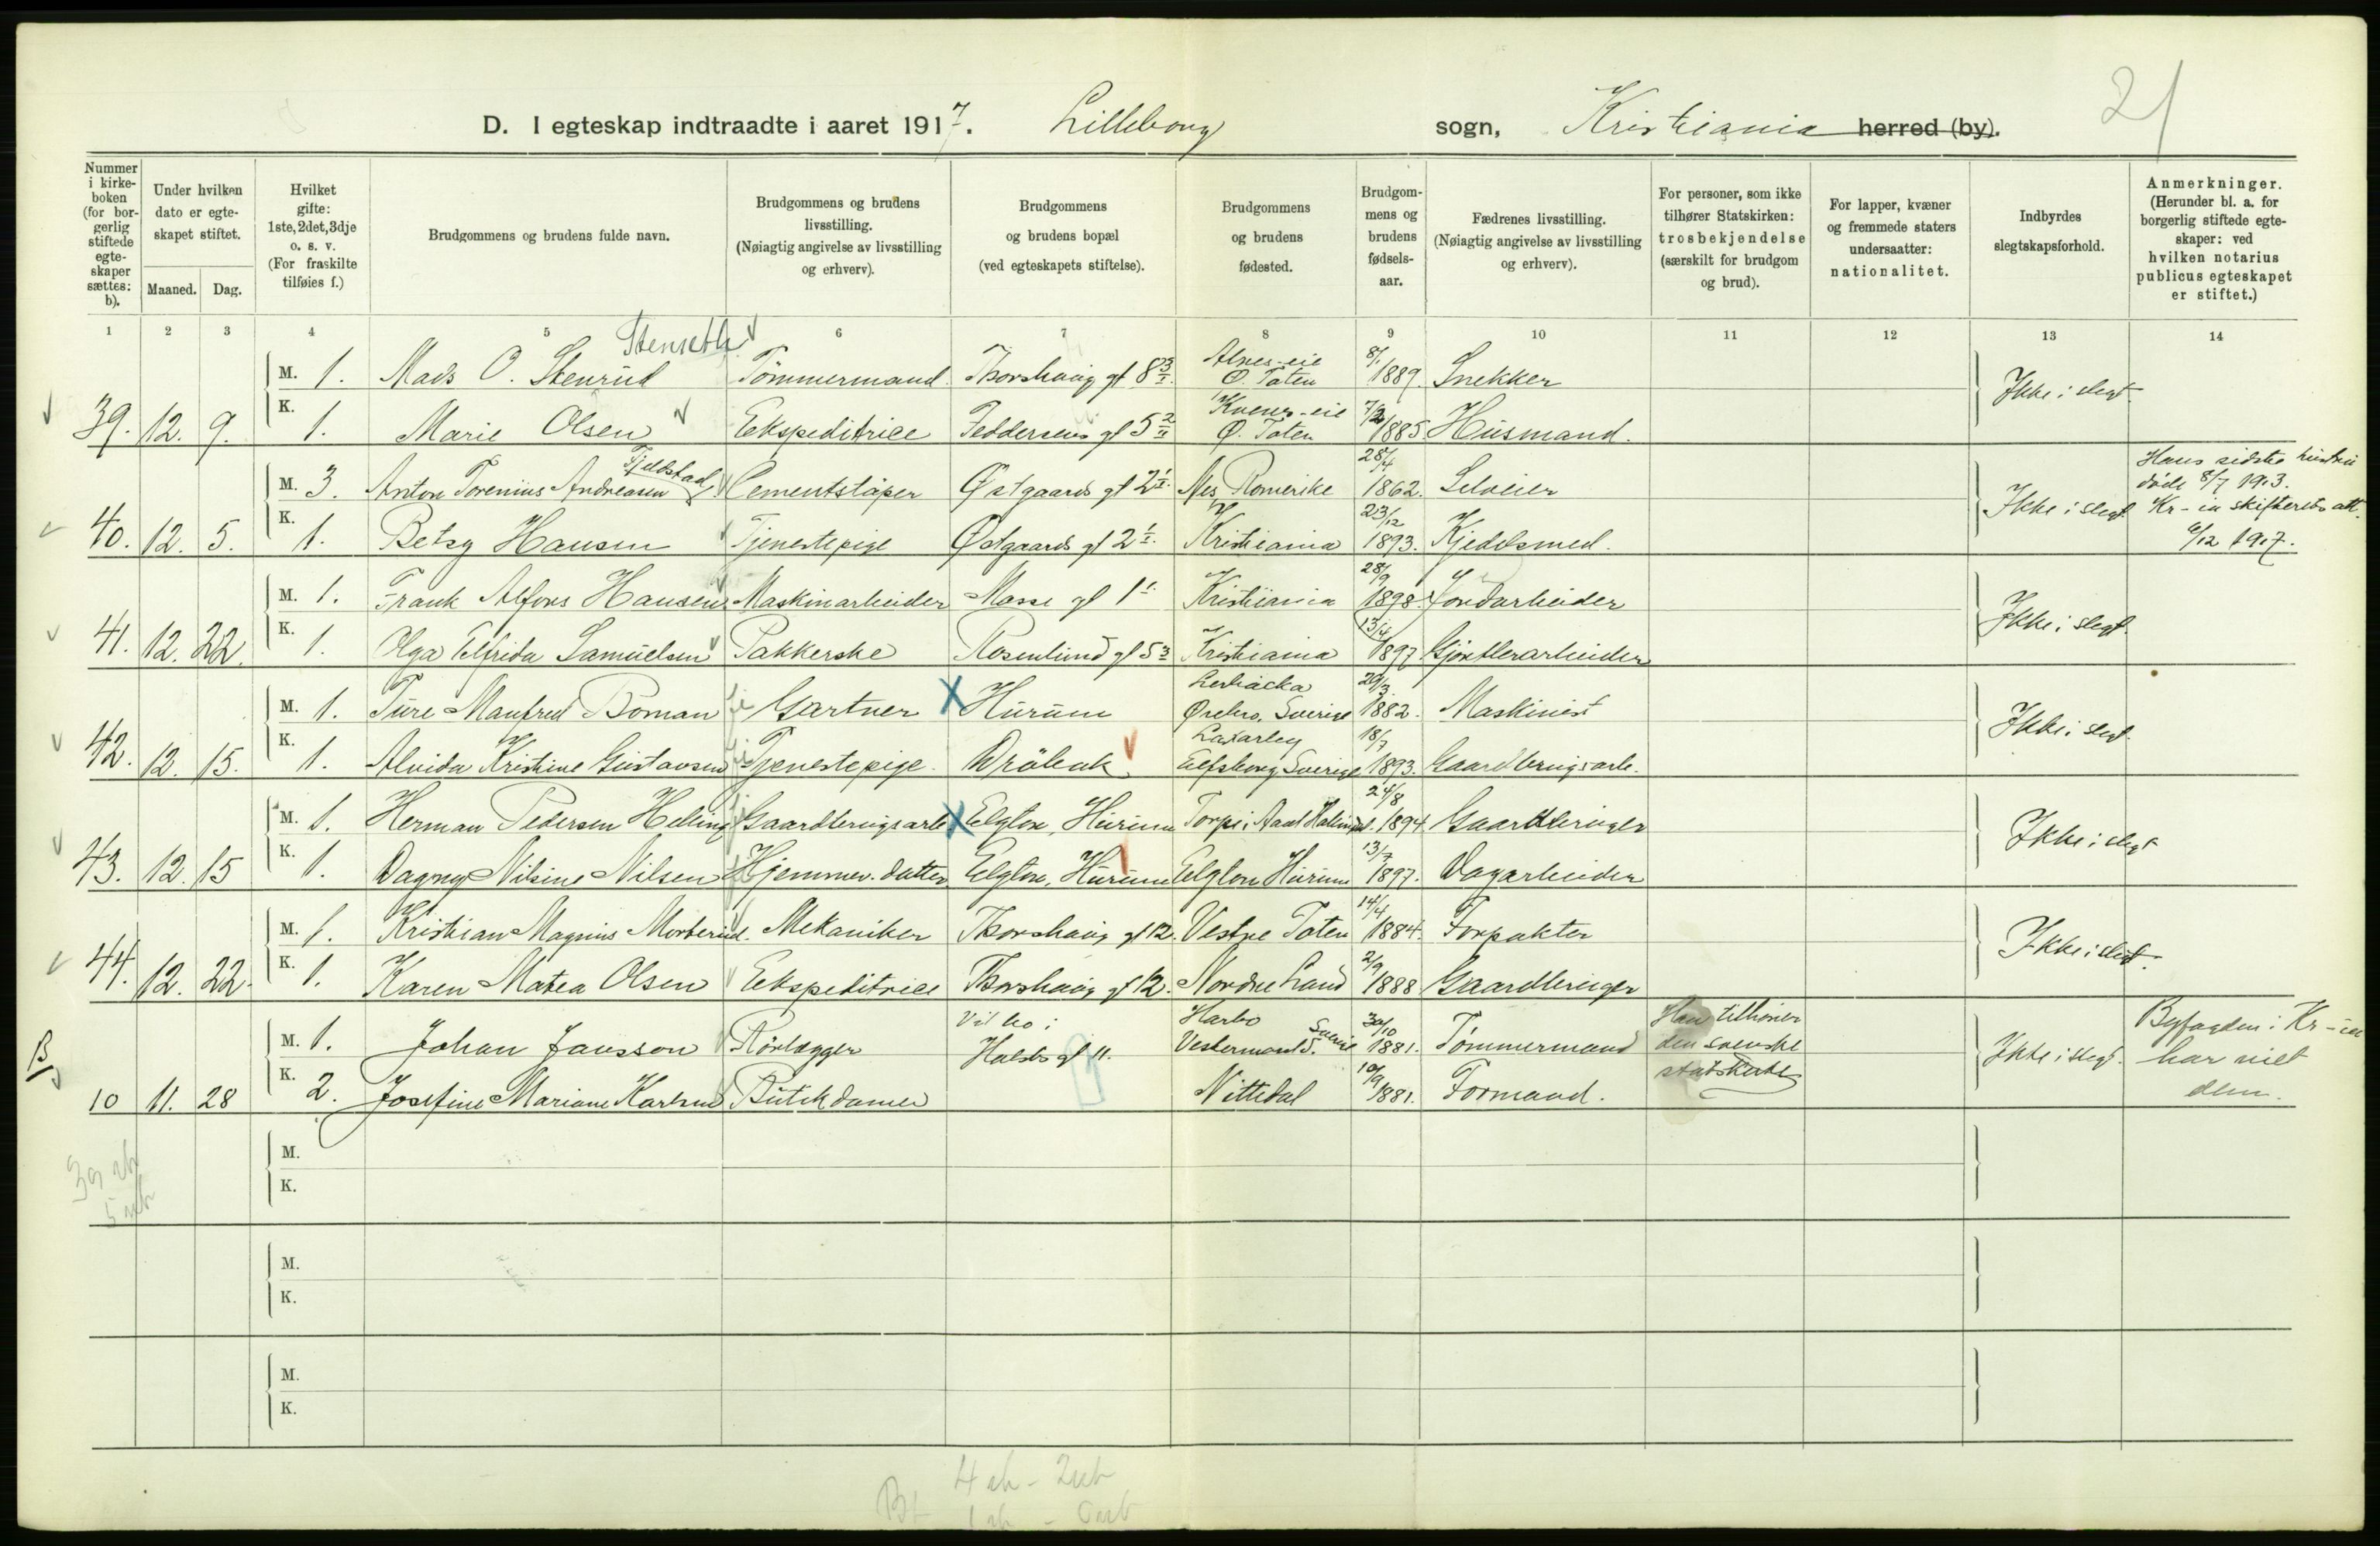 21
D. I egteskap indtraadte i aaret 1917. Lilleborg sogn, Kristiania herred (by).
Nummer i kirkeboken (for borgerlig stiftede egteskaper sættes: b).
Under hvilken dato er egteskapet stiftet.
Maaned. Dag.
Hvilket gifte: 1ste, 2det, 3dje o. s. v. (For fraskilte tilføies f.)
Brudgommens og brudens fulde navn.
Brudgommens og brudens livsstilling. (Nøiagtig angivelse av livsstilling og erhverv).
Brudgommens og brudens bopæl (ved egteskapets stiftelse).
Brudgommens og brudens fødested.
Brudgommens og brudens fødselsaar.
Fædrenes livsstilling. (Nøiagtig angivelse av livsstilling og erhverv).
For personer, som ikke tilhører Statskirken: trosbekjendelse (særskilt for brudgom og brud).
For lapper, kvæner og fremmede staters undersaatter: nationalitet.
Indbyrdes slegtskapsforhold.
Anmerkninger. (Herunder bl. a. for borgerlig stiftede egteskaper: ved hvilken notarius publicus egteskapet er stiftet.)
1 2 3 4 5 6 7 8 9 10 11 12 13 14
Stenseth
M. 1. Mads O. Stenrud Tömmermand Thorshaug gt 8 3/I Alnes-eie Ø. Toten 8/1 1889. Snekker Ikke i slegt
39. 12. 9. K. 1. Marie Olsen Ekspeditrice Feddersens gt 5 2/II Ø. Toten 1885. Husmand.
Fjeldstad
M. 3. Anton Torenius Andreasen Cementstøper Østgaards gt 2 1/I Nes, Romerike 28/4 1862. Selveier Ikke i slegt Hans sidste hustru døde 8/7 1913. Kr-ia skifterets att. 6/12 1917.
40. 12. 5. K. 1. Betsy Hansen Tjenestepige Østgaards gt 2 1/I Kristiania 23/12 1893. Kjedelsmed.
M. 1. Frank Alfons Hansen Maskinarbeider Masse gt 1 Kristiania 28/9 1898. Jordarbeider Ikke i slegt.
41. 12. 22. K. 1. Olga Elfrida Samuelsen Pakkerske Rosenlund gt 5 3 Kristiania 13/4 1897 Gjørtlerarbeider
M. 1. Ture Manfred Boman Gartner X Hurum Lerbäcka Örebro, Sverige 29/3 1882. Maskinist Ikke i slegt.
42. 12. 15. K. 1. Alvida Kristine Gustavsen Tjenestepige Drøbak Laxarby Elfsborg Sverige 18/7 1893. Gaardbrugsarb.
M. 1. Herman Pedersen Helling Gaardbrugsarb. X Elgtον, Hurum Torpe i Aal Halingd. 24/8 1894 Gaardbruger Ikke i slegt
43. 12. 15 K. 1. Dagny Nilsine Nilsen Hjemmev. datter Hurum Hurum 13/7 1897. Dagarbeider
M. 1. Kristian Magnus Morterud. Mekaniker Thorshaug gt 12. Vestre Toten 14/4 1884. Forpakter Ikke i slegt.
44. 12. 22. K. 1. Karen Matea Olsen Ekspeditrice Thorshaug gt 12. Nordre Land 2/9 1888 Gaardbruger
B M. 1. Johan Jansson Rörlægger Vil bo i Halsbs gt 11. Harbo Vestermanld. Sverige 30/10 1881. Tømmermand Han tilhører den svenske statskirke Ikke i slegt. Byfogden i Kr-ia har viet dem.
10 11. 28 K. 2. Josefine Mariane Karlsen Butikdame Nittedal 10/9 1881. Formand.
M.
K.
M.
K.
M.
K.